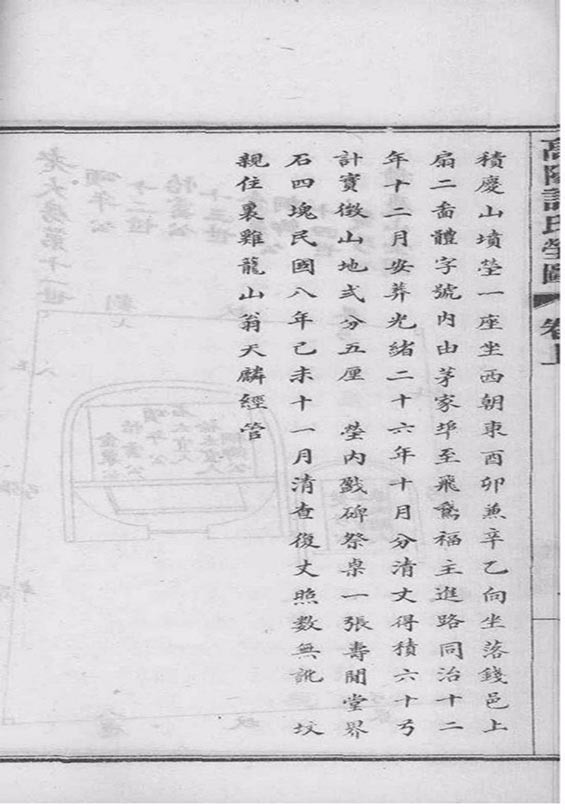 高陽許氏塋圖 卷上
積慶山墳塋一座坐西朝東酉卯兼辛乙向坐落錢邑上
扇二啚體字號內由茅家埠至飛鵞福主進路同治十二
年十二月安葬光緒二十六年十月分清丈得積六十弓
計實徵山地弍分五厘 塋內戤碑祭桌一張壽閒堂界
石四塊民國八年己未十一月清查復丈照數無訛 坟
親住裏雞龍山翁天麟經管